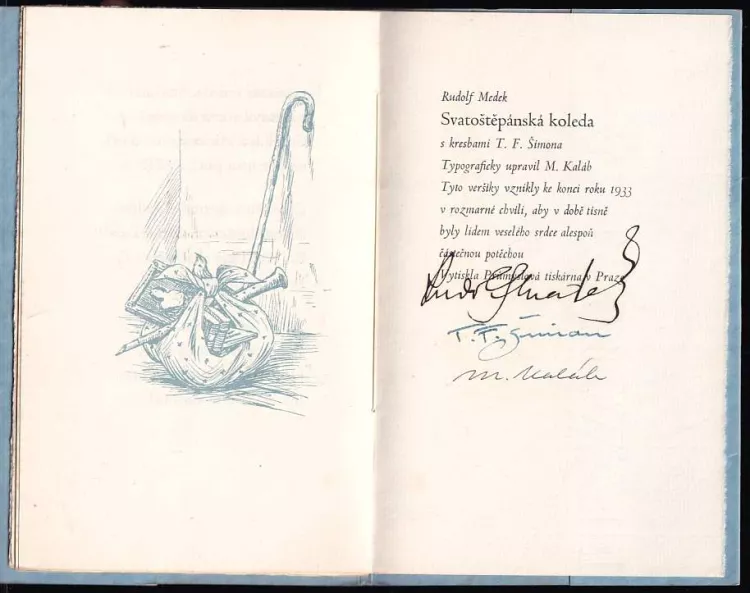 Rudolf Medek
Svatoštěpánská koleda
s kresbami T. F. Šimona
Typograficky upravil M. Kaláb
Tyto veršíky vznikly ke konci roku 1933
v rozmarné chvíli, aby v době tísně
byly lidem veselého srdce alespoň
částečnou potěchou
Vytiskla Průmyslová tiskárna v Praze
Rudolf Medek
T. F. Šimon
M. Kaláb